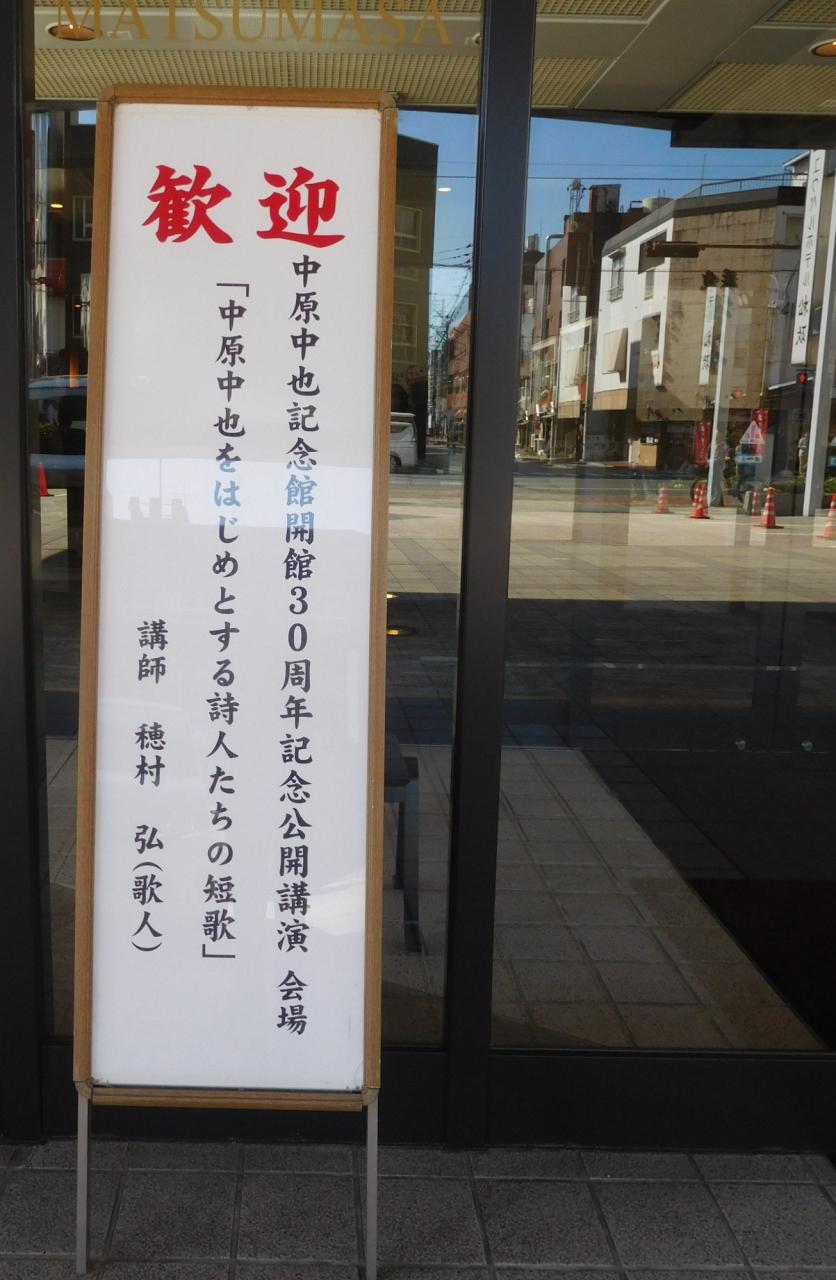 MATSUMASA
歓迎
中原中也記念館開館30周年記念公開講演 会場
「中原中也をはじめとする詩人たちの短歌」
講師 穂村 弘(歌人)